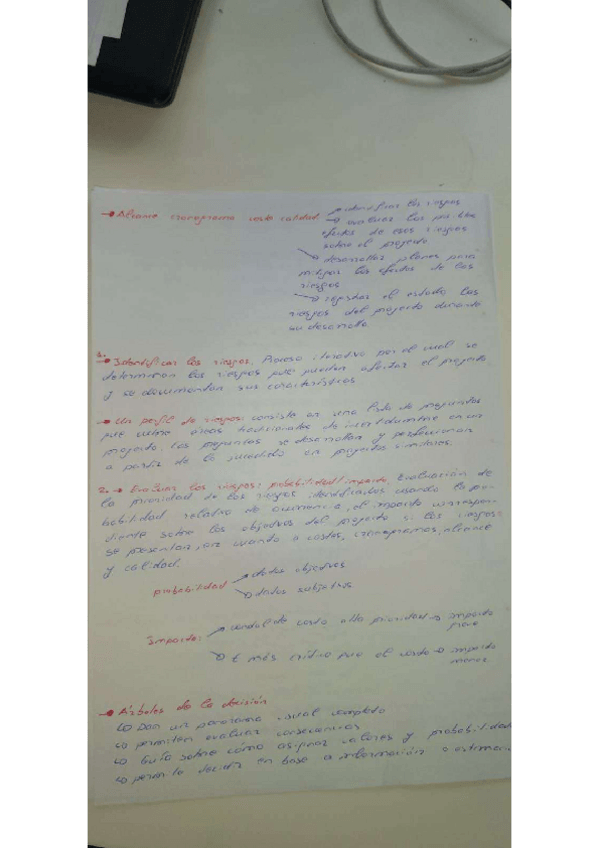 → Alcance cronograma coste calidad → identificar los riesgos
→ evaluar los posibles
efectos de esos riesgos
sobre el proyecto
→ desarrollar planes para
mitigar los efectos de los
riesgos
→ registrar el estado los
riesgos del proyecto durante
su desarrollo
1.
→ Identificar los riesgos. Proceso iterativo por el cual se
determinan los riesgos que pueden afectar el proyecto
y se documentan sus características
→ Un perfil de riesgos: consiste en una lista de preguntas
que cubre áreas tradicionales de incertidumbre en un
proyecto. Las preguntas se desarrollan y perfeccionan
a partir de lo sucedido en proyectos similares.
2. → Evaluar los riesgos: probabilidad/impacto. Evaluación de
la prioridad de los riesgos identificados usando la pro-
babilidad relativa de ocurrencia, el impacto correspon-
diente sobre los objetivos del proyecto si los riesgos
se presentan, en cuanto a costes, cronogramas, alcance
y calidad.
probabilidad → datos objetivos
→ datos subjetivos
Impacto: → costo alta prioridad → impacto
→ más crítico que el costo → impacto
menor
→ Árboles de la decisión
↳ Dan un panorama visual completo
↳ permiten evaluar consecuencias
↳ Guía sobre cómo asignar valores y probabilidad
↳ permite decidir en base a información o estimaci